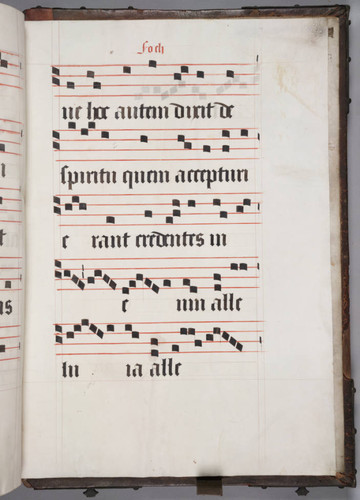 ue hoc autem dixit de
spiritu quem accepturi
e rant credentes in
e um alle
lu ia alle